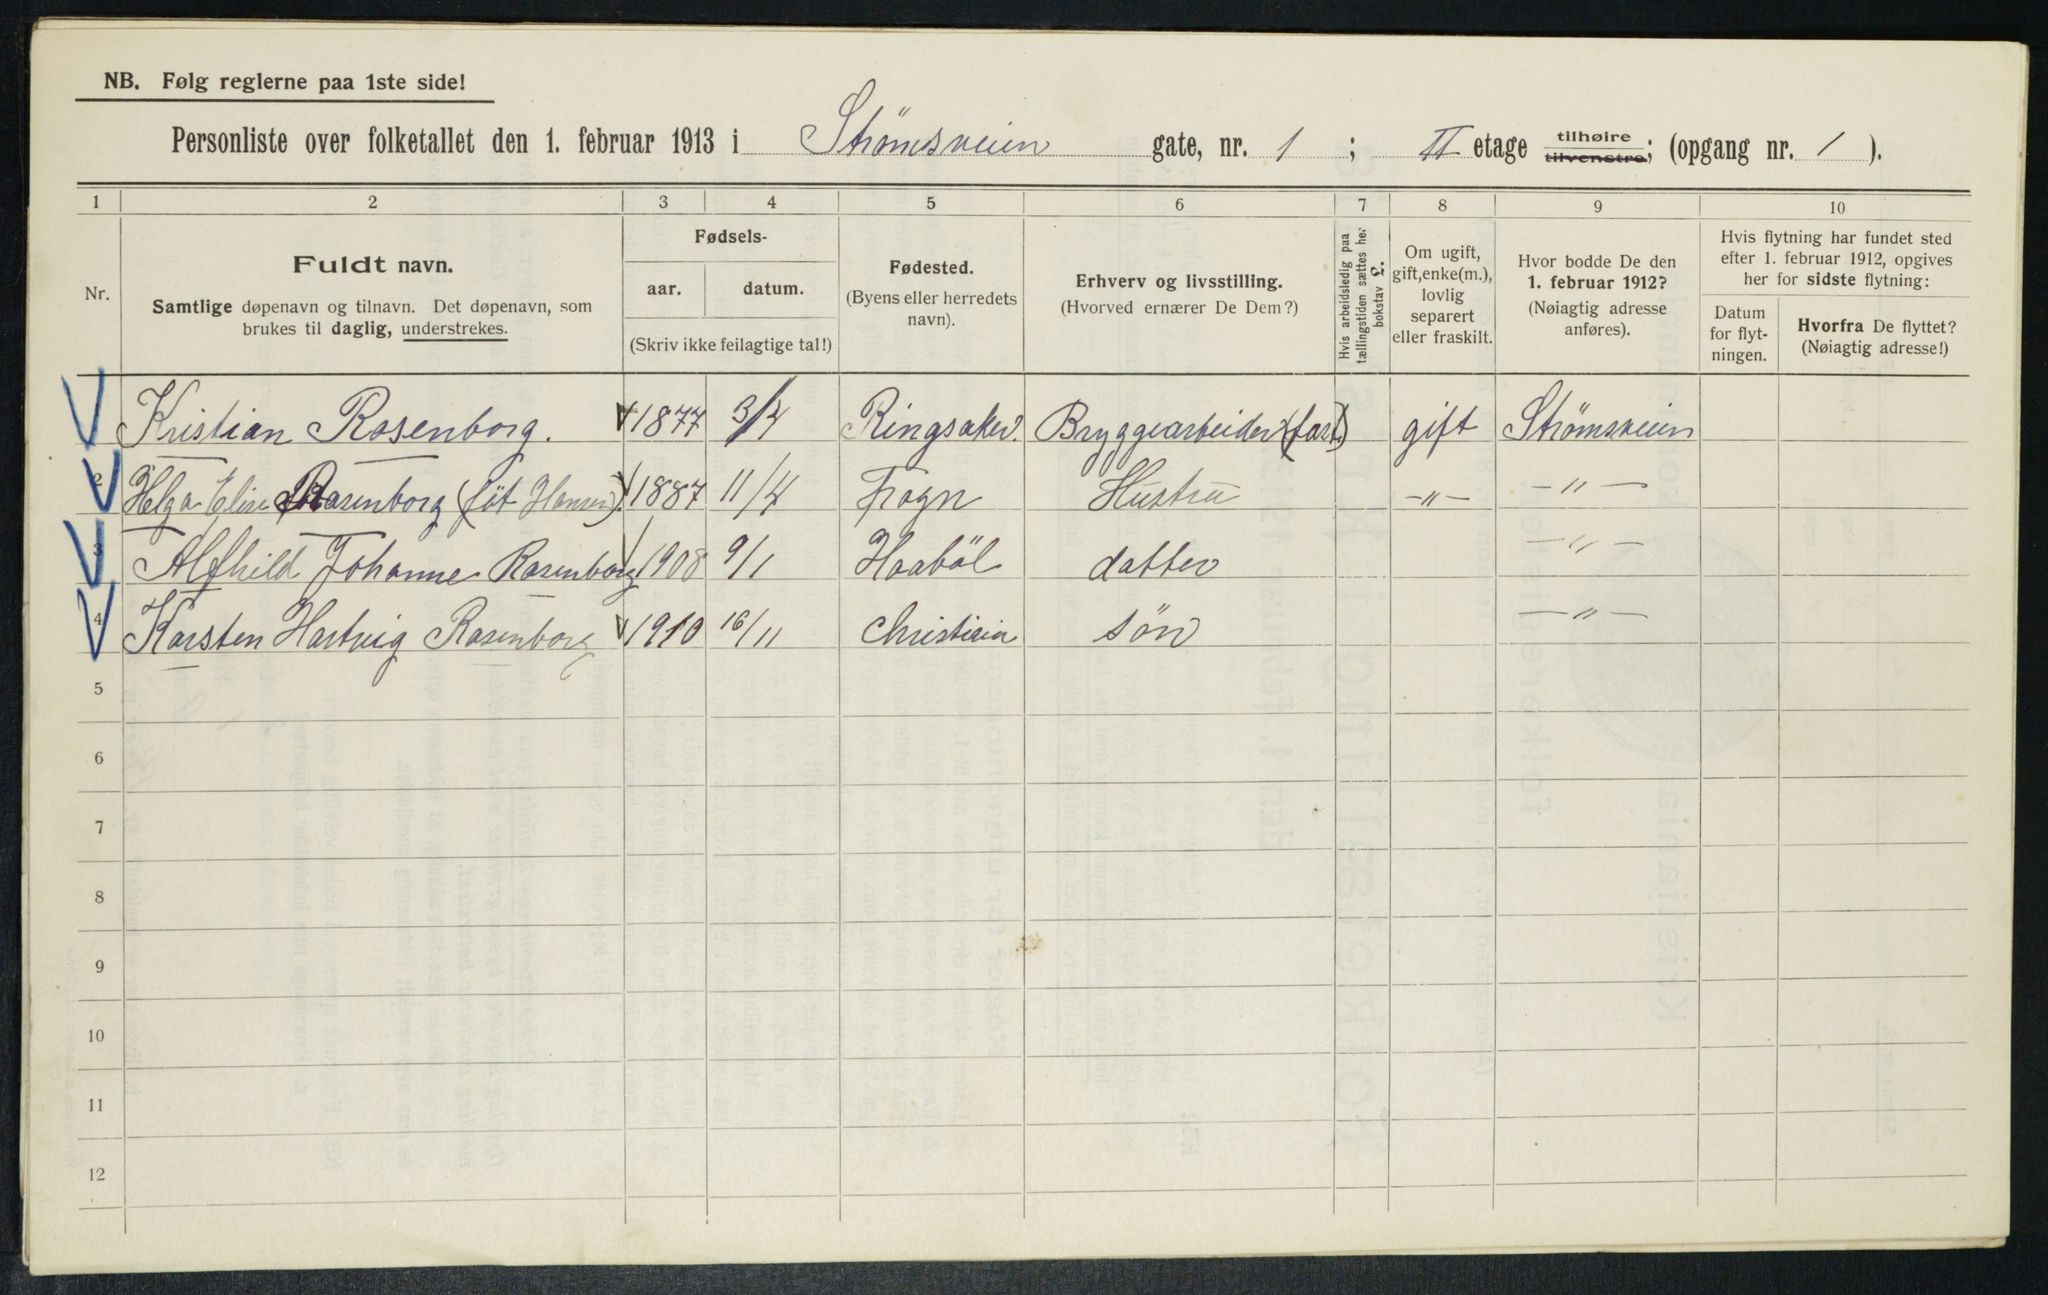 NB. Følg reglerne paa 1ste side!
Personliste over folketallet den 1. februar 1913 i Strømsveien gate, nr. 1 ; II etage tilhøire tilvenstre; (opgang nr. 1 ).
1 2 3 4 5 6 7 8 9 10
Nr.
Fuldt navn.
Samtlige døpenavn og tilnavn. Det døpenavn, som
brukes til daglig, understrekes.
Fødsels-
aar. datum.
(Skriv ikke feilagtige tal!)
Fødested.
(Byens eller herredets
navn).
Erhverv og livsstilling.
(Hvorved ernærer De Dem?)
Hvis arbeidsledig paa
tællingstiden sættes her
bokstav L.
Om ugift,
gift, enke(m.),
lovlig
separert
eller fraskilt.
Hvor bodde De den
1. februar 1912?
(Nøiagtig adresse
anføres).
Hvis flytning har fundet sted
efter 1. februar 1912, opgives
her for sidste flytning:
Datum
for flyt-
ningen.
Hvorfra De flyttet?
(Nøiagtig adresse!)
Kristian Rosenborg. 1877 3/4 Ringsaker. Bryggearbeider (fast) gift Strømsveien
2 Helga Elise Rosenborg (föt Hansen) 1887 11/4 Frogn Hustru -"- -"-
3 Alfhild Johanne Rosenborg 1908 9/1 Haaböl datter -"-
4 Karsten Hartvig Rosenborg 1910 16/11 Christiania sön -"-
5
6
7
8
9
10
11
12